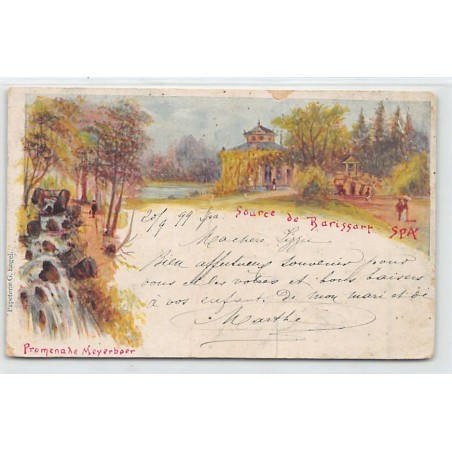 Source de Barissart
SPA
20/9 99 Spa.
Ma chère Lizzie
Bien affectueux souvenir pour
vous et les vôtres et bons baisers
à vos enfant, de mon mari et de
Marthe
Papeterie G. Engel.
Promenade Meyerbeer